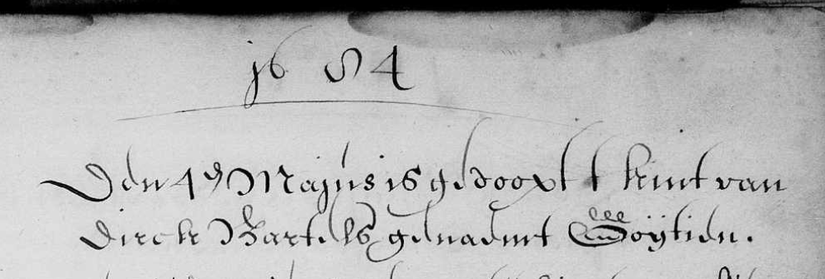 1654
Den 4 Majus is gedoopt t kint van
Dirck Bartels genaemt Goÿtien.